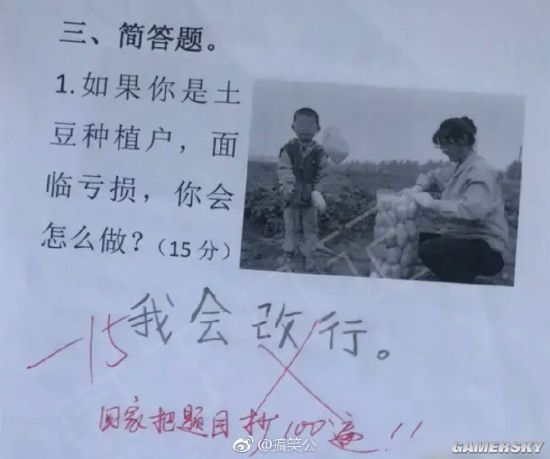 三、简答题。
1.如果你是土
豆种植户，面
临亏损，你会
怎么做？（15分）
-15 我会改行。
回家把题目抄100遍！！
@搞笑公
GAMERSKY